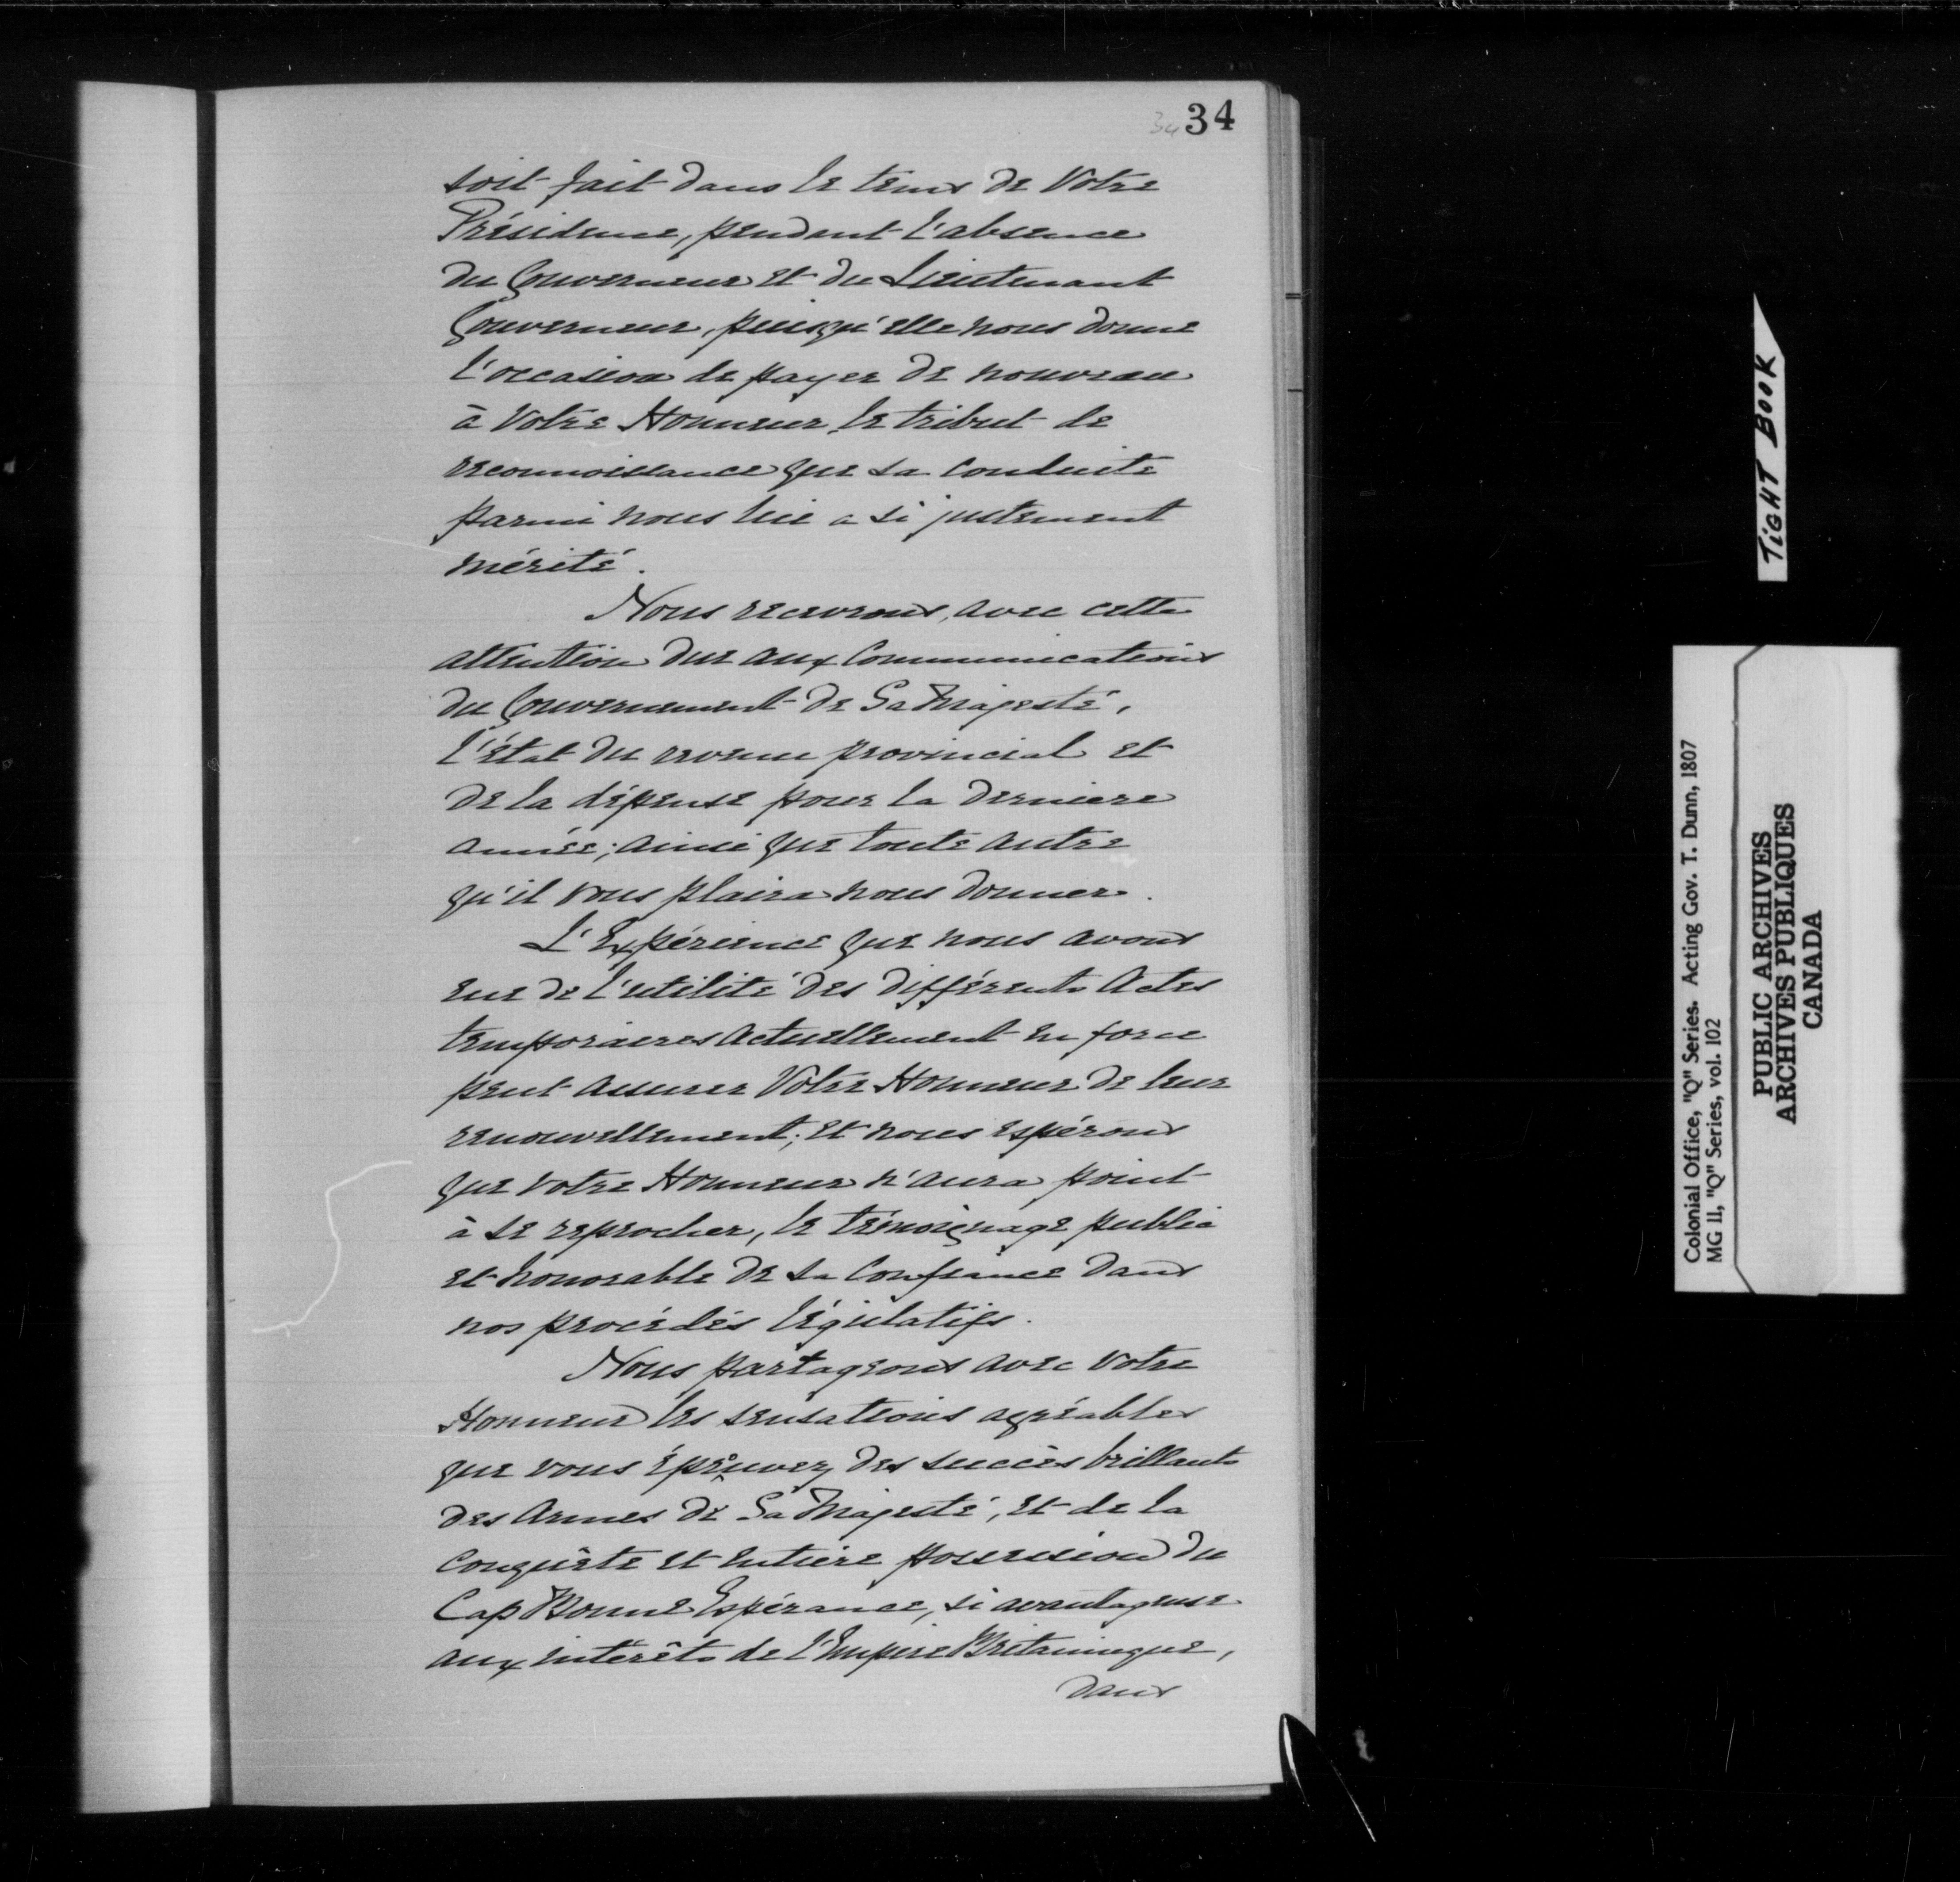 34 34
soit fait dans le tems de Votre
Présidence, pendant l'absence
du Gouverneur et du Lieutenant
Gouverneur, puisqu'elle nous donne
l'occasion de payer de nouveau
à Votre Honneur, le tribut de
reconnoissance que sa conduite
parmi nous lui a si justement
mérité.
Nous recevrons, avec cette
attention due aux Communications
du Gouvernement de Sa Majesté,
l'état du revenu provincial et
de la dépense pour la derniere
année; ainsi que toute autre
qu'il vous plaira nous donner.
L'Expérience que nous avons
eue de l'utilité des différents Actes
temporaires actuellement en force
peut assurer Votre Honneur de leur
renouvellement; et nous espérons
que votre Honneur n'aura point
à se reprocher, le témoignage public
et honorable de sa confiance dans
nos procédés législatifs.
Nous partageons avec votre
Honneur les sensations agréables
que vous éprouvez des succès brillants
des Armes de Sa Majesté, et de la
conquête et entière possession du
Cap Bonne Espérance, si avantageuse
aux intérêts de l'Empire Britannique,
dans
TIGHT BOOK
Colonial Office, "Q" Series. Acting Gov. T. Dunn, 1807
MG 11, "Q" Series, vol. 102
PUBLIC ARCHIVES
ARCHIVES PUBLIQUES
CANADA